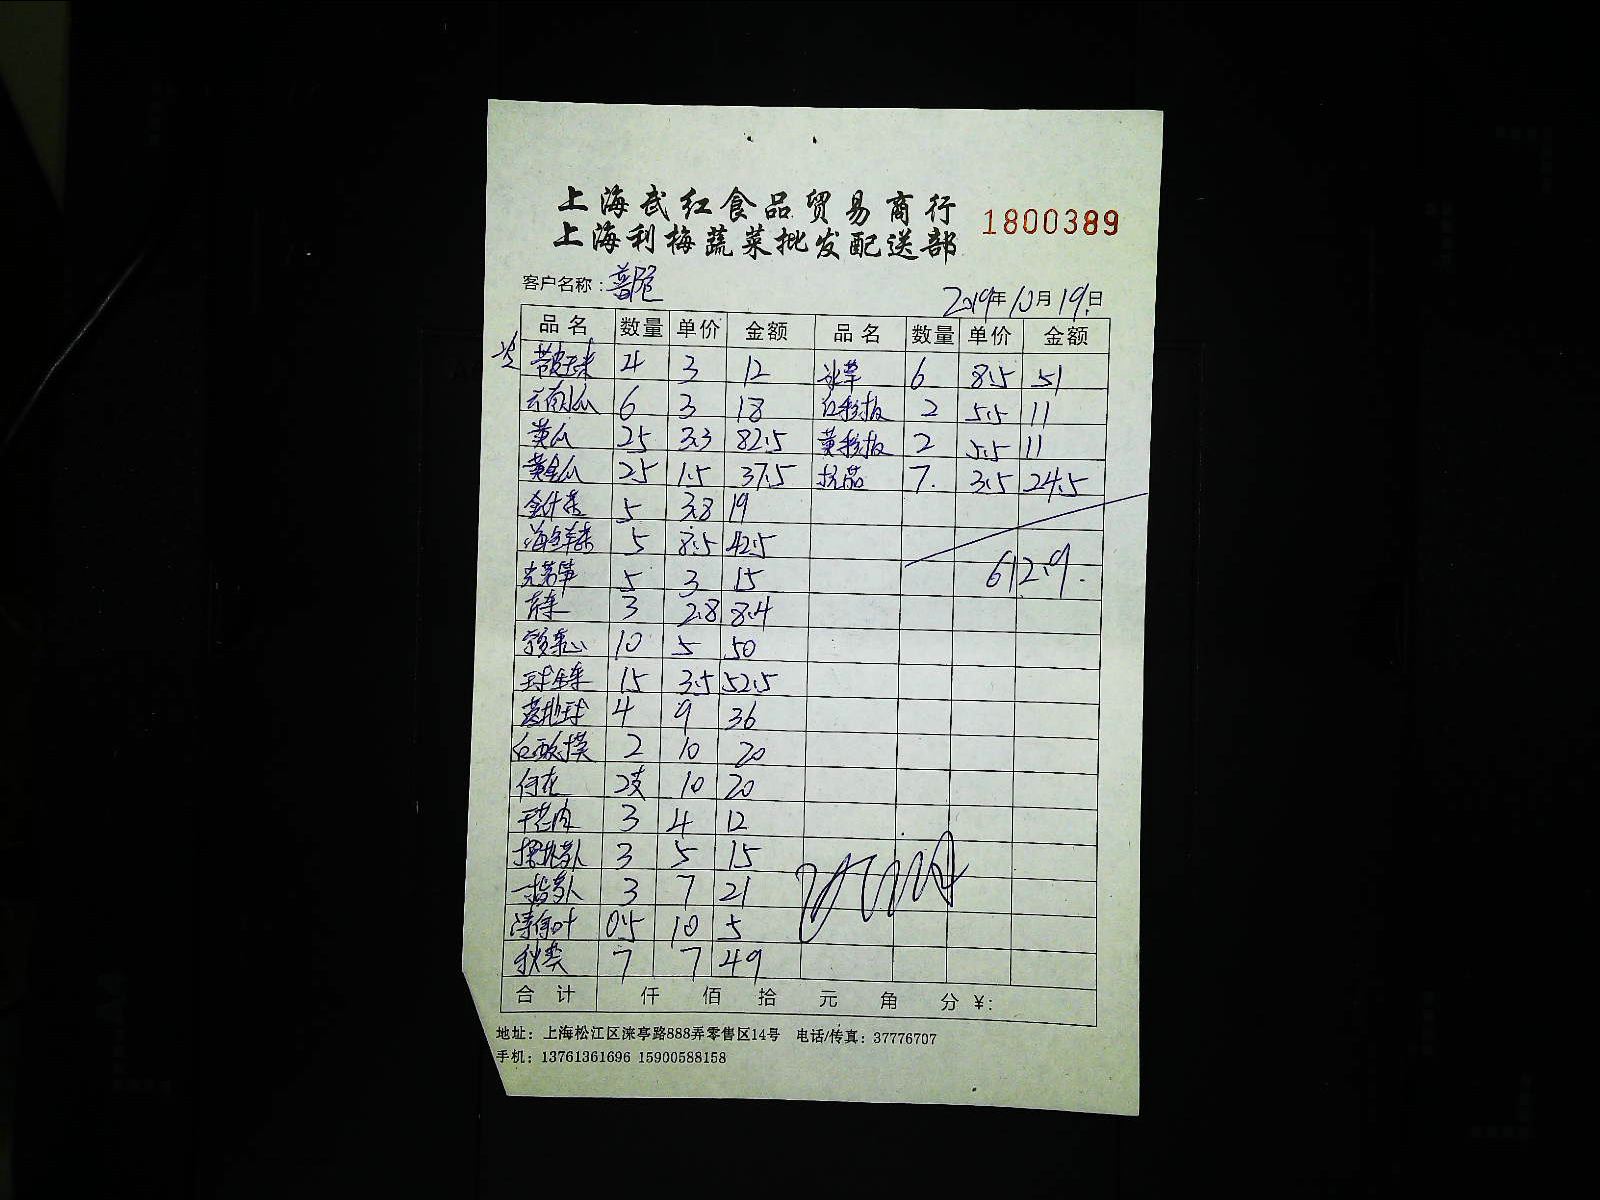 上海武红食品贸易商行
上海利梅蔬菜批发配送部
1800389
客户名称：
2019年10月19日
品名 数量 单价 金额 品名 数量 单价 金额
带皮玉米 4 3 12 冰草 6 8.5 51
云南小瓜 6 3 18 红彩椒 2 5.5 11
黄瓜 25 3.3 82.5 黄彩椒 2 5.5 11
黄金瓜 25 1.5 37.5 杭茄 7. 3.5 24.5
金针菇 5 3.8 19
海鲜菇 5 8.5 42.5
光莴笋 5 3 15
青菜 3 2.8 8.4
菜心 10 5 50
球生菜 15 3.5 52.5
4 9 36
2 10 20
2支 10 20
3 4 12
3 5 15
3 7 21
0.5 10 5
秋葵 7 7 49
612.9.
合计 仟 佰 拾 元 角 分 ¥:
地址：上海松江区涞亭路888弄零售区14号 电话/传真：37776707
手机：13761361696 15900588158